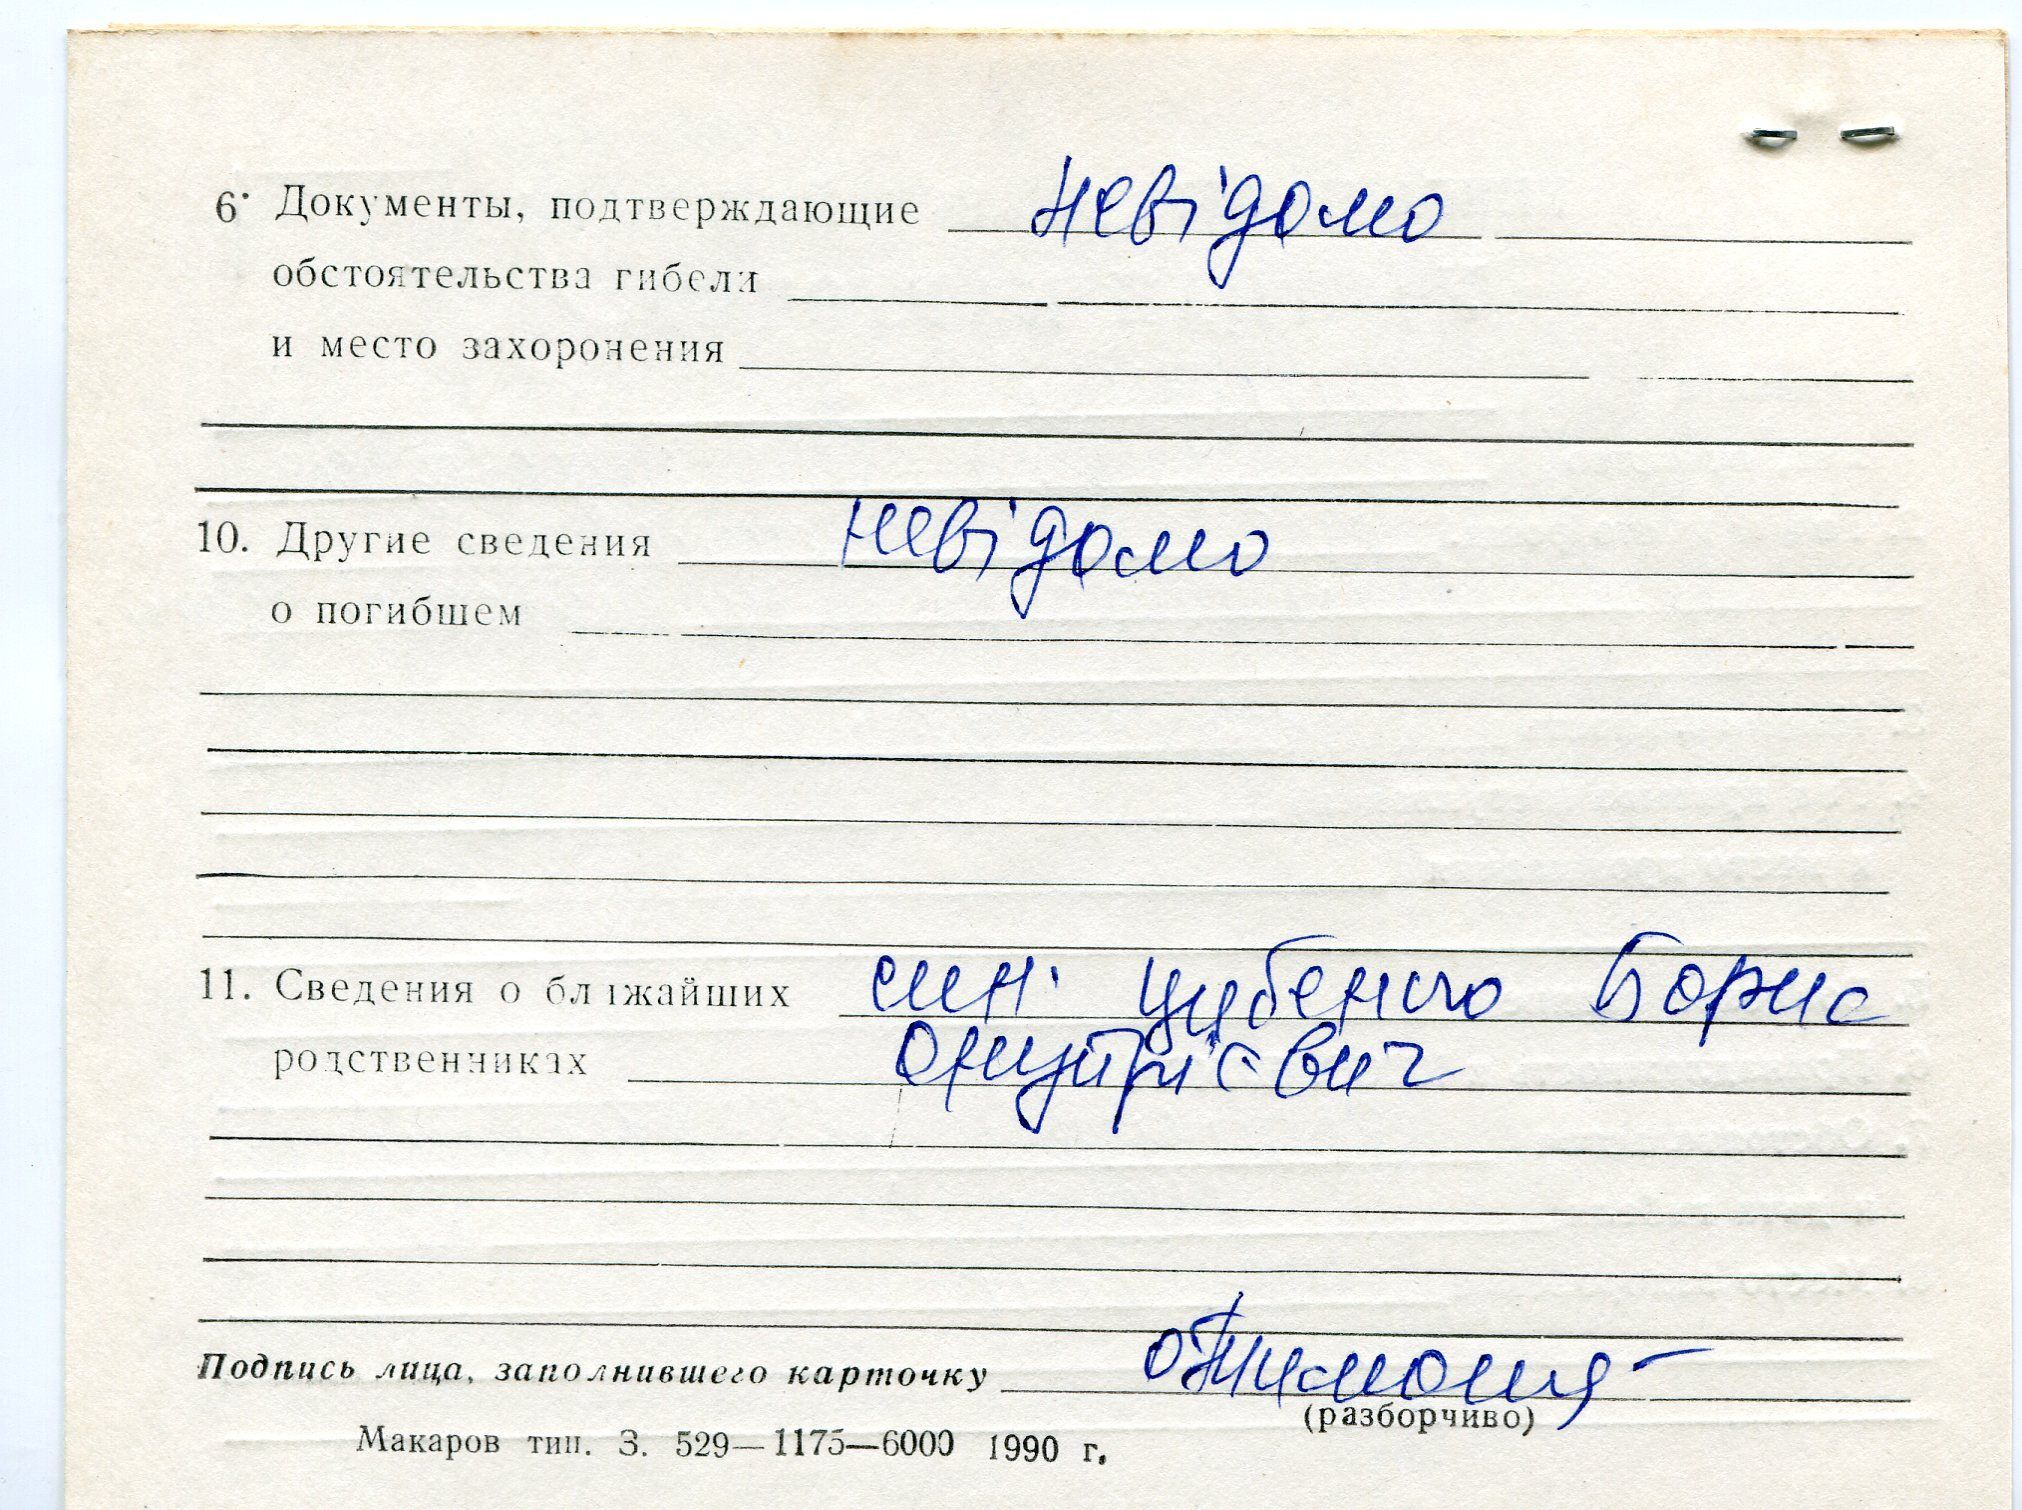 6. Документы, подтверждающие невідомо
обстоятельства гибели
и место захоронения
10. Другие сведения невідомо
о погибшем
11. Сведения о ближайших син Цубенко Борис
родственниках Онуфрієвич
Подпись лица, заполнившего карточку
(разборчиво)
Макаров тип. З. 529—1175—6000 1990 г.